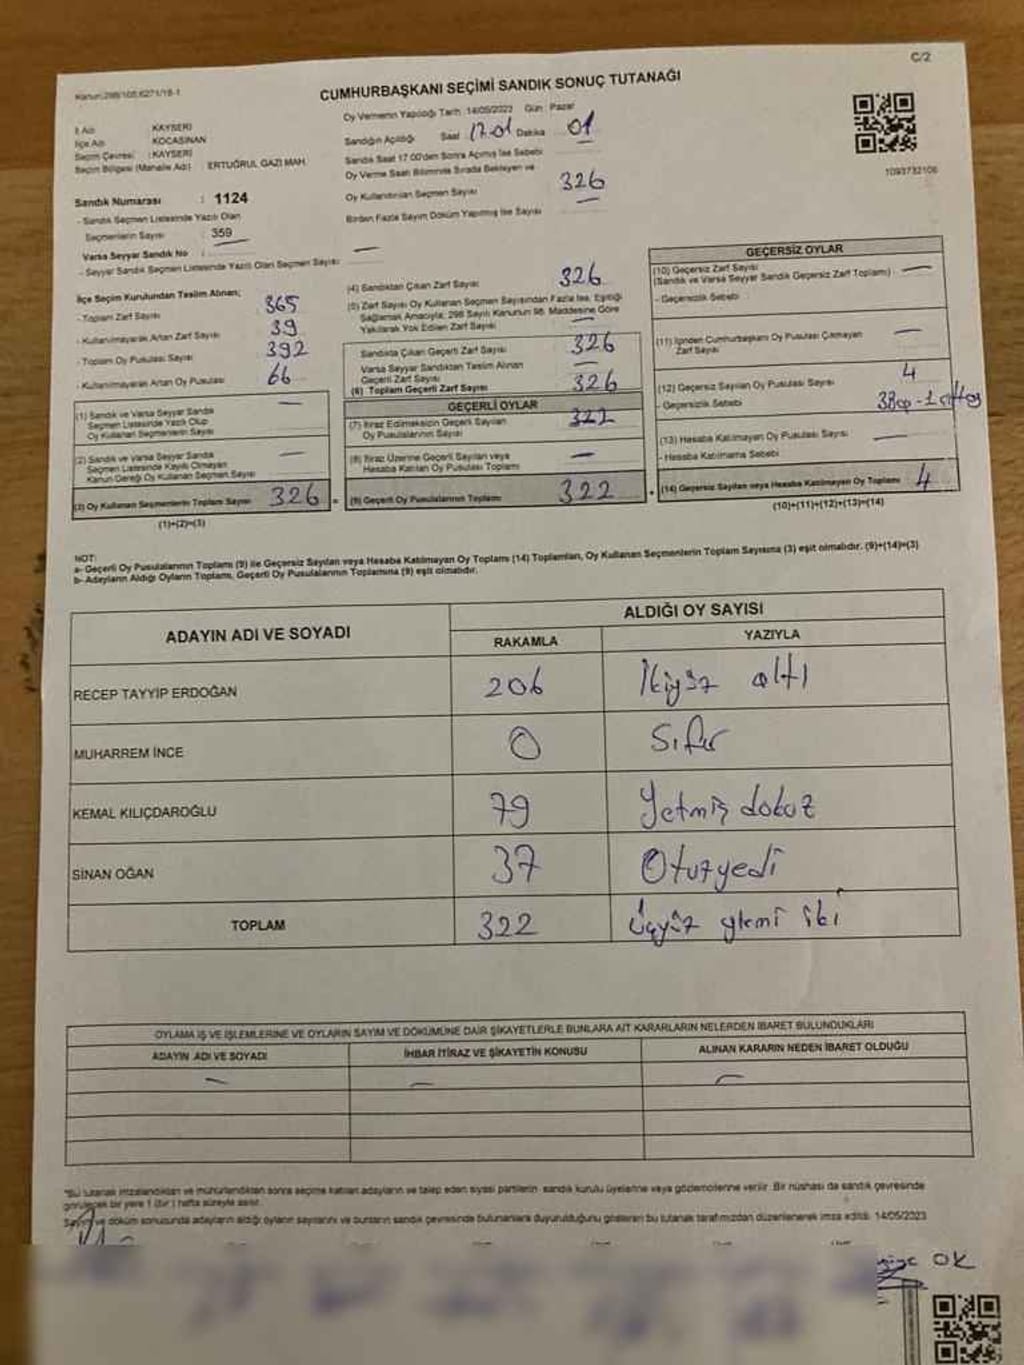 C/2
Kanun:298/105:6271/18-1
CUMHURBAŞKANI SEÇİMİ SANDIK SONUÇ TUTANAĞI
İl Adı : KAYSERİ
İlçe Adı : KOCASİNAN
Seçim Çevresi : KAYSERİ
Seçim Bölgesi (Mahalle Adı) : ERTUĞRUL GAZİ MAH.
Sandık Numarası : 1124
- Sandık Seçmen Listesinde Yazılı Olan
Seçmenlerin Sayısı : 359
Varsa Seyyar Sandık No :
- Seyyar Sandık Seçmen Listesinde Yazılı Olan Seçmen Sayısı: —
Oy Vermenin Yapıldığı Tarih :14/05/2023 Gün : Pazar
Sandığın Açıldığı Saat 17.01 Dakika 01
Sandık Saat 17.00'den Sonra Açılmış İse Sebebi
Oy Verme Saati Bitiminde Sırada Bekleyen ve
Oy Kullandırılan Seçmen Sayısı 326
Birden Fazla Sayım Döküm Yapılmış İse Sayısı
1093732106
İlçe Seçim Kurulundan Teslim Alınan;
- Toplam Zarf Sayısı 365
- Kullanılmayarak Artan Zarf Sayısı 39
- Toplam Oy Pusulası Sayısı 392
- Kullanılmayarak Artan Oy Pusulası 66
(1) Sandık ve Varsa Seyyar Sandık
Seçmen Listesinde Yazılı Olup
Oy Kullanan Seçmenlerin Sayısı —
(2) Sandık ve Varsa Seyyar Sandık
Seçmen Listesinde Kayıtlı Olmayan
Kanun Gereği Oy Kullanan Seçmen Sayısı —
(3) Oy Kullanan Seçmenlerin Toplam Sayısı 326 =
(1)+(2)=(3)
(4) Sandıktan Çıkan Zarf Sayısı 326
(5) Zarf Sayısı Oy Kullanan Seçmen Sayısından Fazla İse, Eşitliği
Sağlamak Amacıyla; 298 Sayılı Kanunun 98. Maddesine Göre
Yakılarak Yok Edilen Zarf Sayısı —
Sandıkta Çıkan Geçerli Zarf Sayısı 326
Varsa Seyyar Sandıktan Teslim Alınan
Geçerli Zarf Sayısı —
(6) Toplam Geçerli Zarf Sayısı 326
GEÇERLİ OYLAR
(7) İtiraz Edilmeksizin Geçerli Sayılan
Oy Pusulalarının Sayısı 322
(8) İtiraz Üzerine Geçerli Sayılan veya
Hesaba Katılan Oy Pusulası Toplamı —
(9) Geçerli Oy Pusulalarının Toplamı 322 +
GEÇERSİZ OYLAR
(10) Geçersiz Zarf Sayısı
(Sandık ve Varsa Seyyar Sandık Geçersiz Zarf Toplamı) —
- Geçersizlik Sebebi
(11) İçinden Cumhurbaşkanı Oy Pusulası Çıkmayan
Zarf Sayısı —
(12) Geçersiz Sayılan Oy Pusulası Sayısı 4
- Geçersizlik Sebebi
(13) Hesaba Katılmayan Oy Pusulası Sayısı —
- Hesaba Katılmama Sebebi
(14) Geçersiz Sayılan veya Hesaba Katılmayan Oy Toplamı 4
(10)+(11)+(12)+(13)=(14)
NOT:
a- Geçerli Oy Pusulalarının Toplamı (9) ile Geçersiz Sayılan veya Hesaba Katılmayan Oy Toplamı (14) Toplamları, Oy Kullanan Seçmenlerin Toplam Sayısına (3) eşit olmalıdır. (9)+(14)=(3)
b- Adayların Aldığı Oyların Toplamı, Geçerli Oy Pusulalarının Toplamına (9) eşit olmalıdır.
ADAYIN ADI VE SOYADI
ALDIĞI OY SAYISI
RAKAMLA YAZIYLA
RECEP TAYYİP ERDOĞAN 206 İkiyüz altı
MUHARREM İNCE 0 Sıfır
KEMAL KILIÇDAROĞLU 79 Yetmiş dokuz
SİNAN OĞAN 37 Otuzyedi
TOPLAM 322 Üçyüz yirmi iki
OYLAMA İŞ VE İŞLEMLERİNE VE OYLARIN SAYIM VE DÖKÜMÜNE DAİR ŞİKAYETLERLE BUNLARA AİT KARARLARIN NELERDEN İBARET BULUNDUKLARI
ADAYIN ADI VE SOYADI İHBAR İTİRAZ VE ŞİKAYETİN KONUSU ALINAN KARARIN NEDEN İBARET OLDUĞU
— — —
*Bu tutanak imzalandıktan ve mühürlendikten sonra seçime katılan adayların ve talep eden siyasi partilerin sandık kurulu üyelerine veya gözlemcilerine verilir. Bir nüshası da sandık çevresinde
görülecek bir yere 1 (bir) hafta süreyle asılır.
Sayım ve döküm sonucunda adayların aldığı oyların sayılarını ve bunların sandık çevresinde bulunanlara duyurulduğunu gösteren bu tutanak tarafımızdan düzenlenerek imza edildi. 14/05/2023
OK